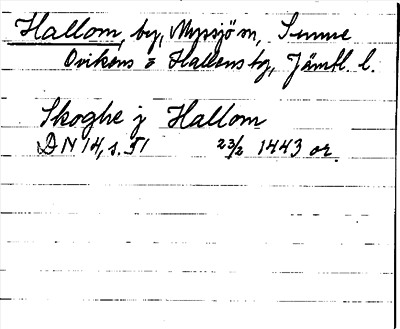 Hallom, by, Myssjö sn, Sunne
Ovikens & Hallens tg, Jämtl. l.
Skoghe j Hallom
DN 14, s. 51 23/2 1443 or.